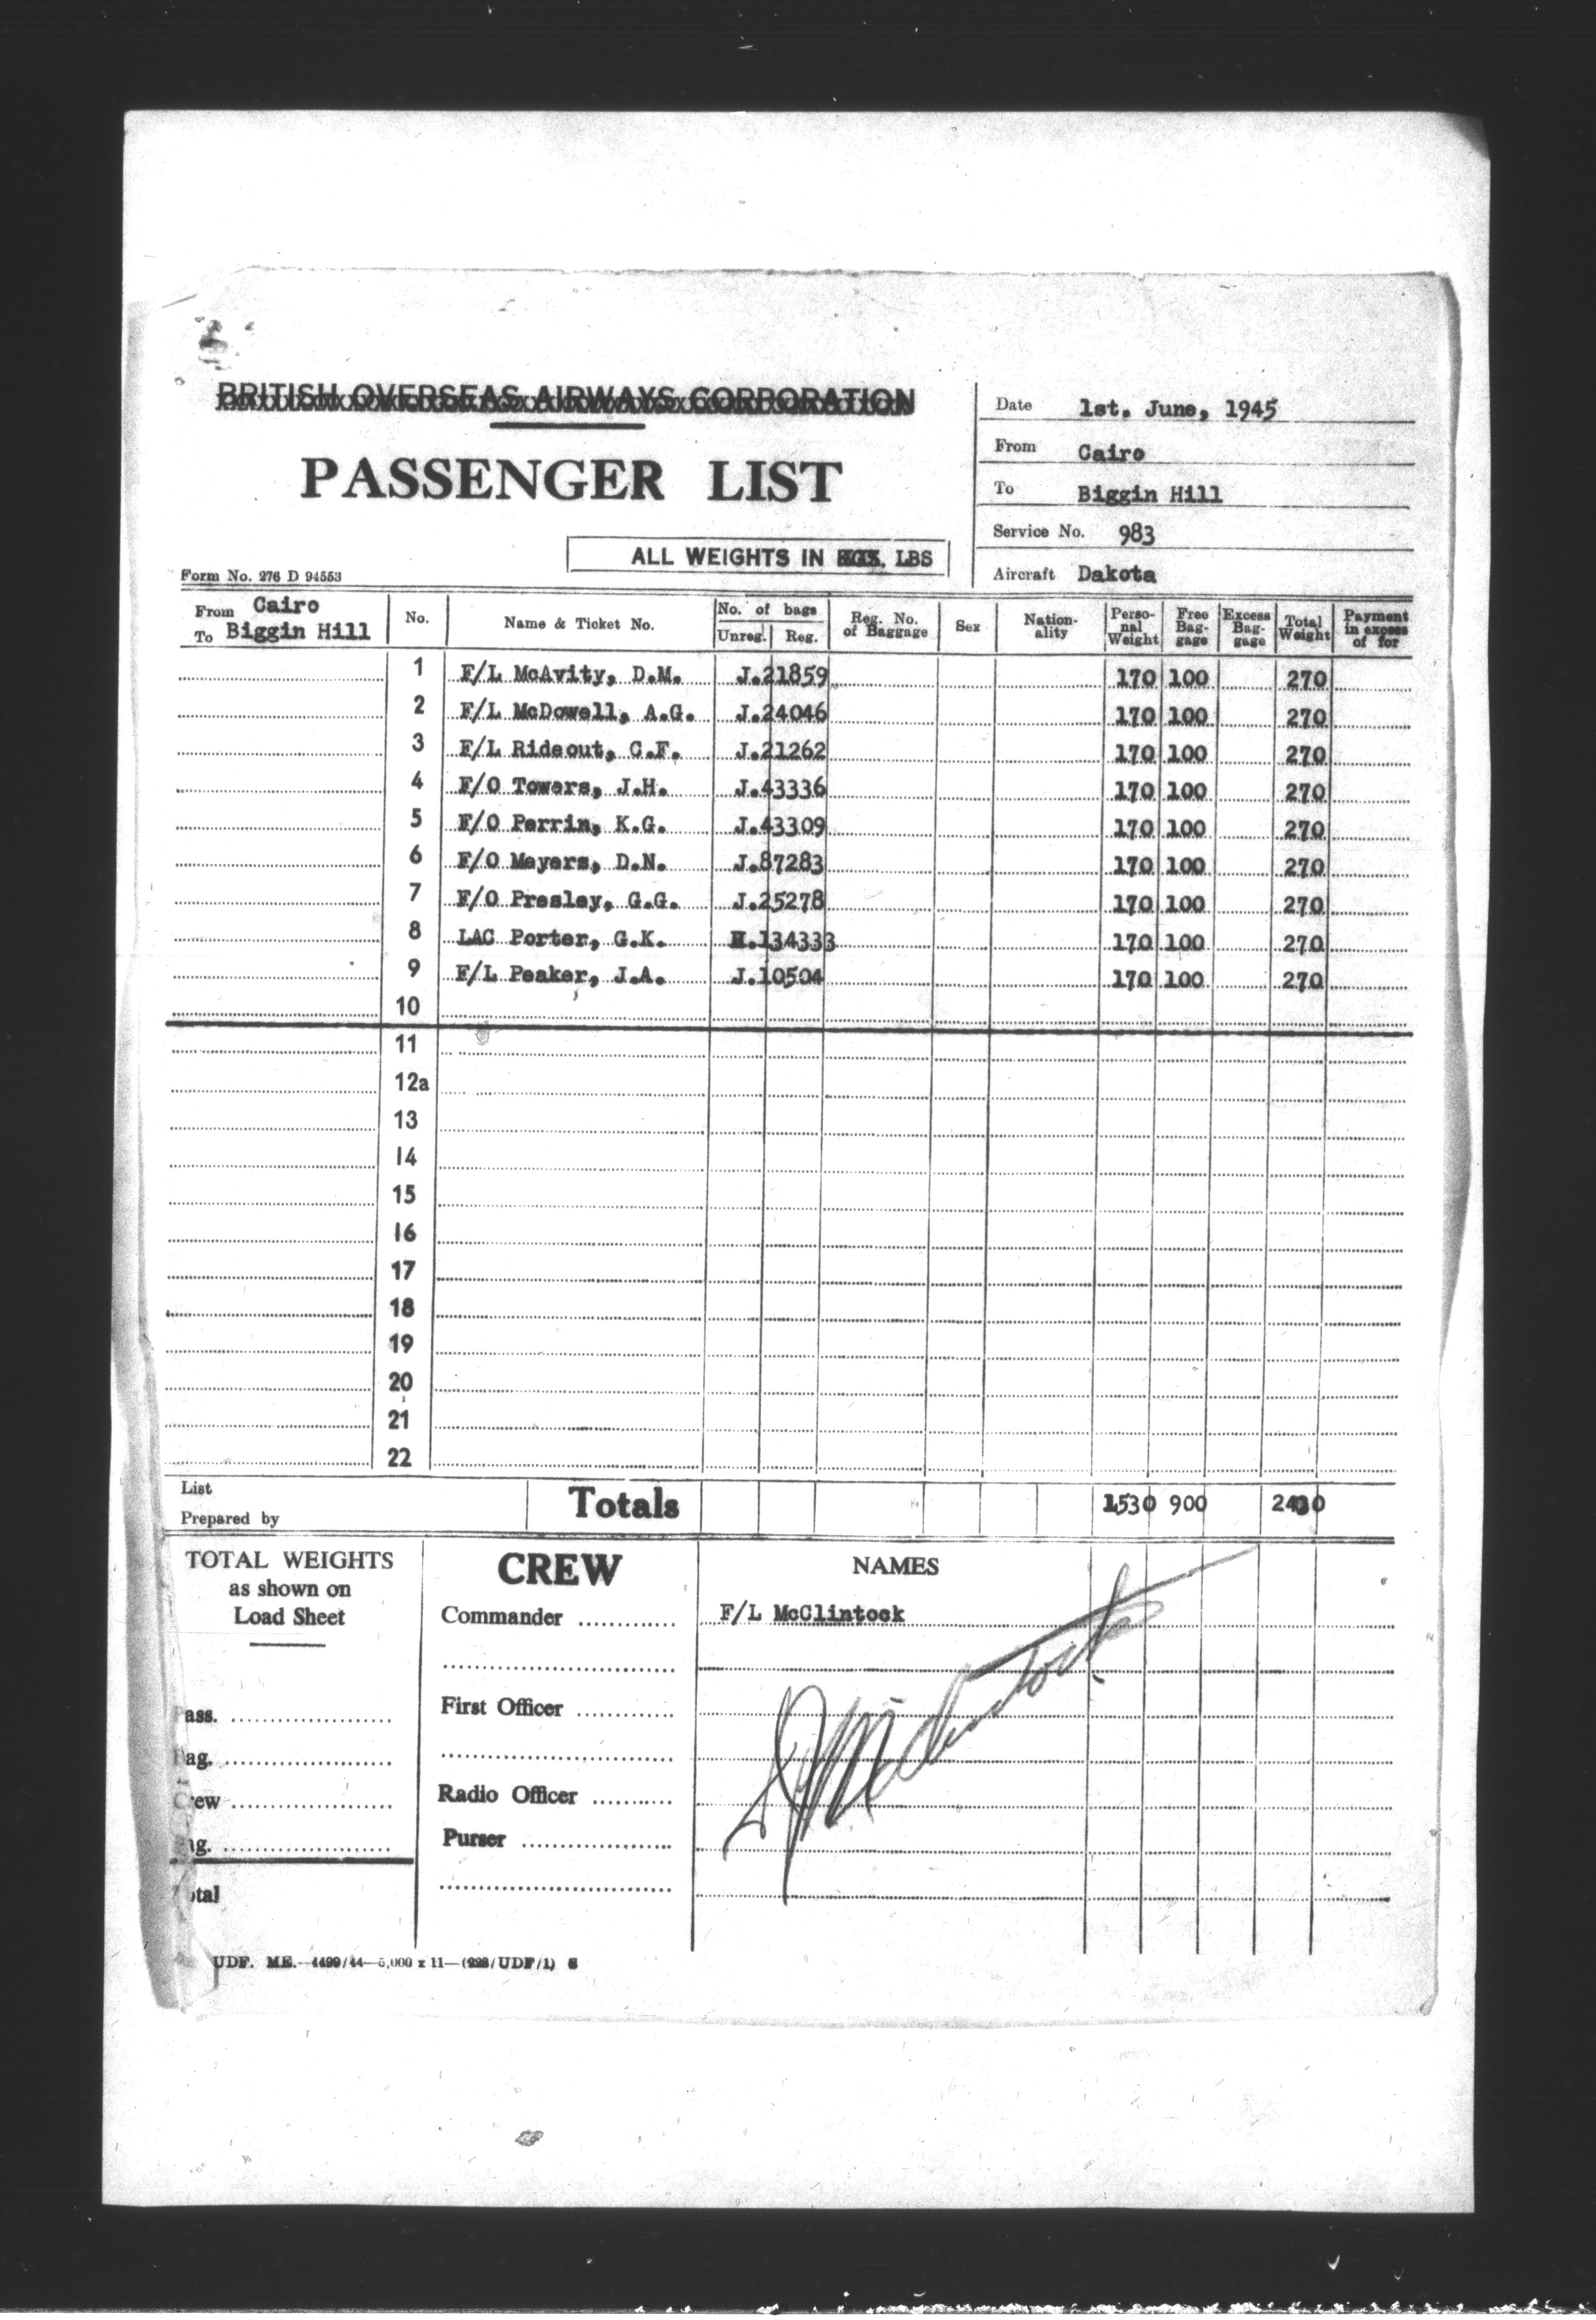 BRITISH OVERSEAS AIRWAYS CORPORATION
PASSENGER LIST
ALL WEIGHTS IN KGS. LBS
Form No. 276 D 94553
Date 1st. June, 1945
From Cairo
To Biggin Hill
Service No. 983
Aircraft Dakota
From Cairo
To Biggin Hill
No. Name & Ticket No. No. of bags Unreg. Reg. Reg. No. of Baggage Sex Nation-ality Perso-nal Weight Free Bag-gage Excess Bag-gage Total Weight Payment in excess of for
1 F/L McAvity, D.M. J.21859 170 100 270
2 F/L McDowell, A.G. J.24046 170 100 270
3 F/L Rideout, C.F. J.21262 170 100 270
4 F/O Towers, J.H. J.43336 170 100 270
5 F/O Perrin, K.G. J.43309 170 100 270
6 F/O Meyers, D.N. J.87283 170 100 270
7 F/O Presley, G.G. J.25278 170 100 270
8 LAC Porter, G.K. 134333 170 100 270
9 F/L Peaker, J.A. J.10504 170 100 270
10
11
12a
13
14
15
16
17
18
19
20
21
22
List
Prepared by
Totals 1530 900 2430
TOTAL WEIGHTS
as shown on
Load Sheet
Pass.
Bag.
Crew
Total
CREW NAMES
Commander F/L McClintock
First Officer
Radio Officer
Purser
McClintock
UDF. ME.—4499/44—5,000 x 11—(228/UDF/1) S